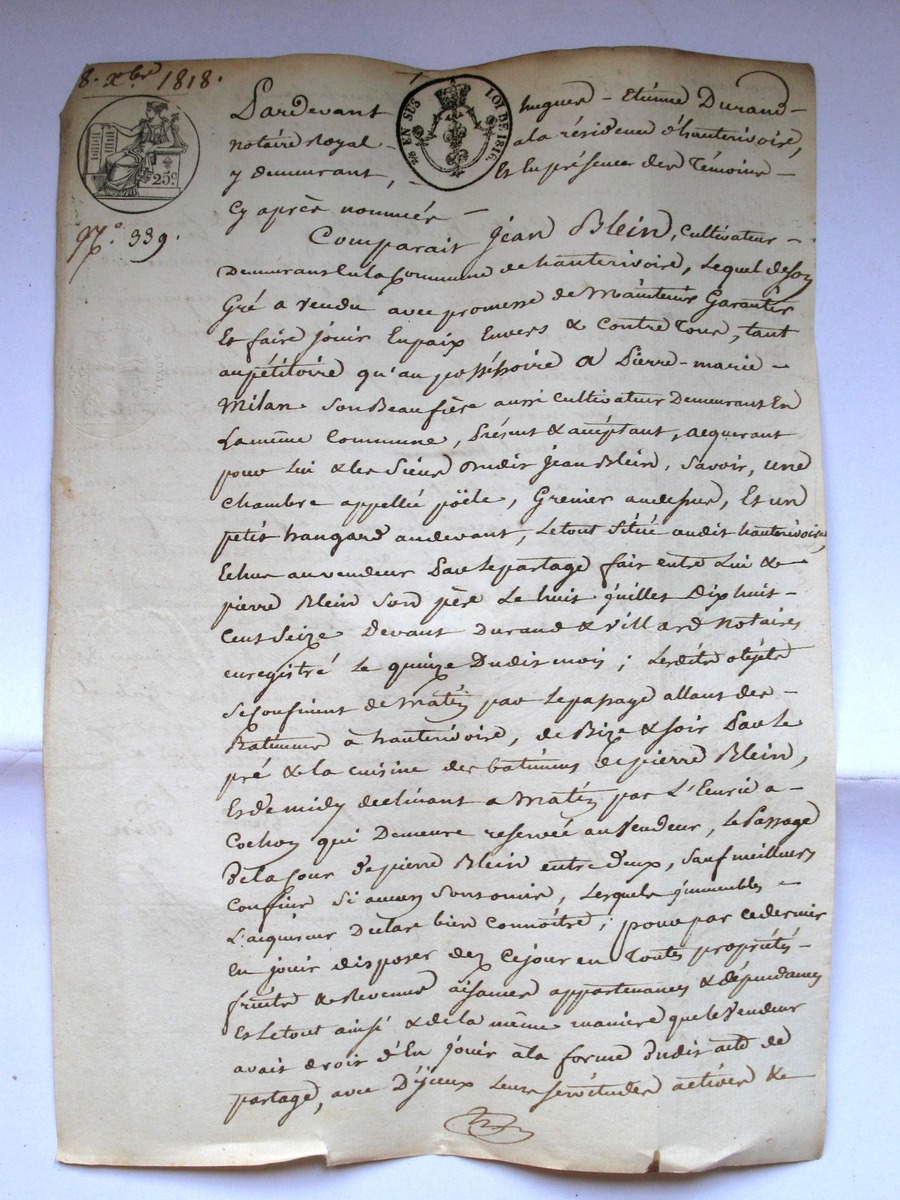 8. xbre 1818.
Pardevant hugues - Etiènne Durand -
notaire Royal - ala résidence d'hauterivoire,
EN SUS
LOI DE 1816.
25c
y demeurant, - Et En présence des Témoins -
Cy après nommés -
N.° 339.
Comparait jean Blein, Cultivateur -
Demeurant En la Commune de hauterivoire, Lequel de son
Gré a vendu avec promesse de Maintenir Garantir
Et faire jouir En paix Envers & Contre Tous, tant
au pétitoire qu'au posséssoire a Pierre-marie -
Milan Son Beaufrère aussi Cultivateur Demeurant En
La même Commune, Présent & acceptant, acquerant
pour Lui & les Siens dudit jean Blein, Savoir, une
chambre appellée poële, Grenier audessus, Et un
petit hangard audevant, Le tout Situé audit hauterivoire,
Echus au vendeur Par le partage fait entre Lui &
pierre Blein Son père Le huit juillet Dix huit -
Cent Seize Devant Durand & villard notaires
enregistré Le quinze Dudit mois ; Lesdits objets
Se Confinent de Matin par Le passage allant des -
à hauterivoire, de Bize & Soir Par le
pré & la cuisine des batimens de pierre Blein,
Et de midy declinant a Matin par L'Ecurie a -
Cochon qui Demeure reservée au Vendeur, Le Passage
de la Cour de pierre Blein entre deux, Sauf meilleurs
Confins Si aucuns Sont omis, Lesquels jmmeubles -
L'acquéreur Déclare bien Connoître ; pour par ce dernier
En jouir disposer dez Ce jour en Toutes propriétés -
fruits & Revenus aisances appartenances & dépendances
Et Le tout ainsi & de la même manière que le Vendeur
avait droit d'En jouir à la forme dudit acte de
partage, avec D'jceux Leurs Servitudes actives &